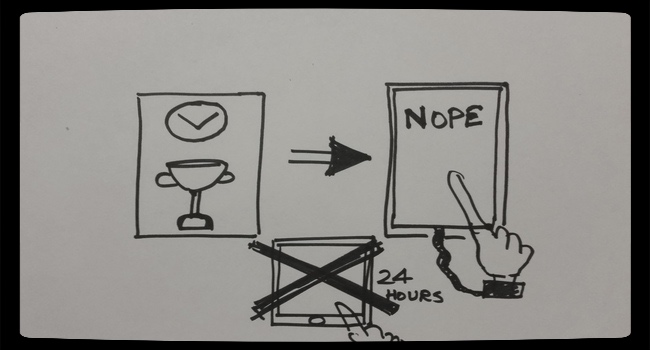 NOPE
24
HOURS